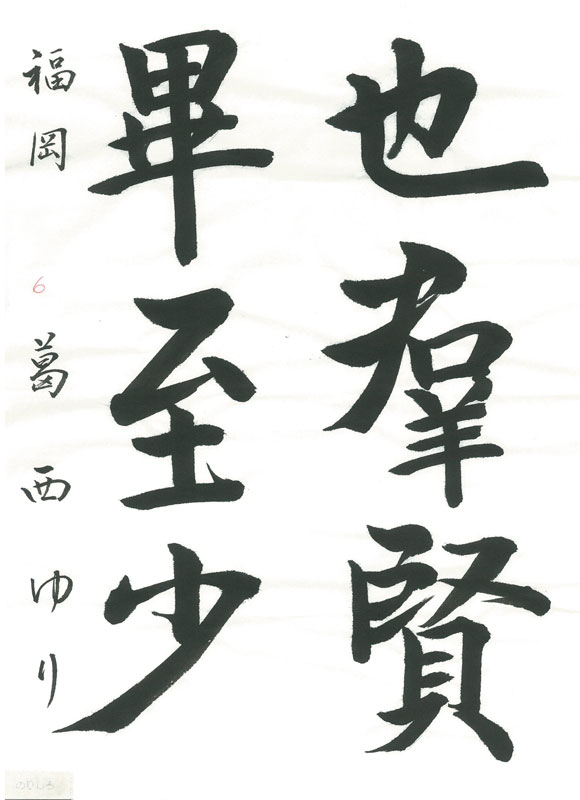 也羣賢
畢至少
福岡 6 葛西ゆり